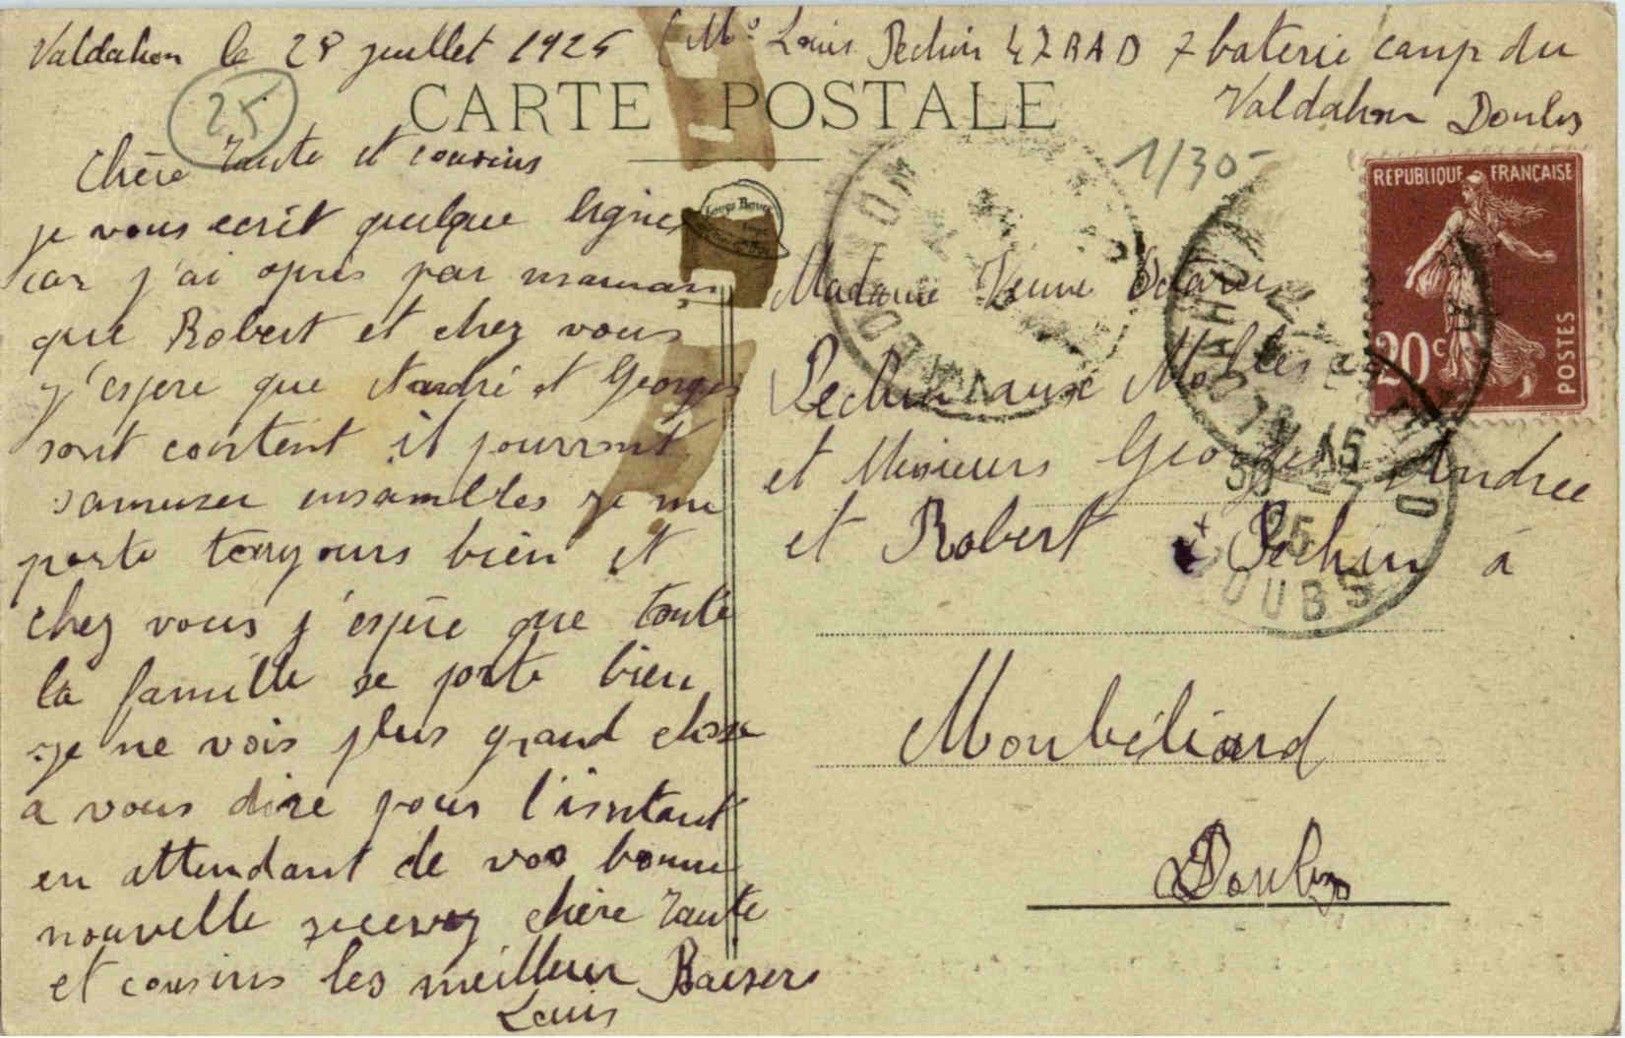 Valdahon le 28 juillet 1925 (Mr Louis Pechin 47 RAD 7 baterie camp du
Valdahon Doubs
25
CARTE POSTALE
1/30
Chère Tante et cousins
je vous ecrit quelque ligne
car j'ai apris par maman
que Robert et chez vous
j'espere que Andre et Georges
sont content il pourront
samuser ensambles je me
porte toujours bien et
chez vous j'espère que toute
la famille se porte bien
je ne vois plus grand chose
a vous dire pour l'instant
en attendant de vos bonne
nouvelle recevez chère Tante
et cousins les meilleur Baisers
Louis
REPUBLIQUE FRANÇAISE
20c
POSTES
Madame Veuve
Pechin aux
et Messieurs Georges Andree
et Robert Pechin à
Monbéliard
Doubs
VALDAHON
15
30 -7
25
DOUBS